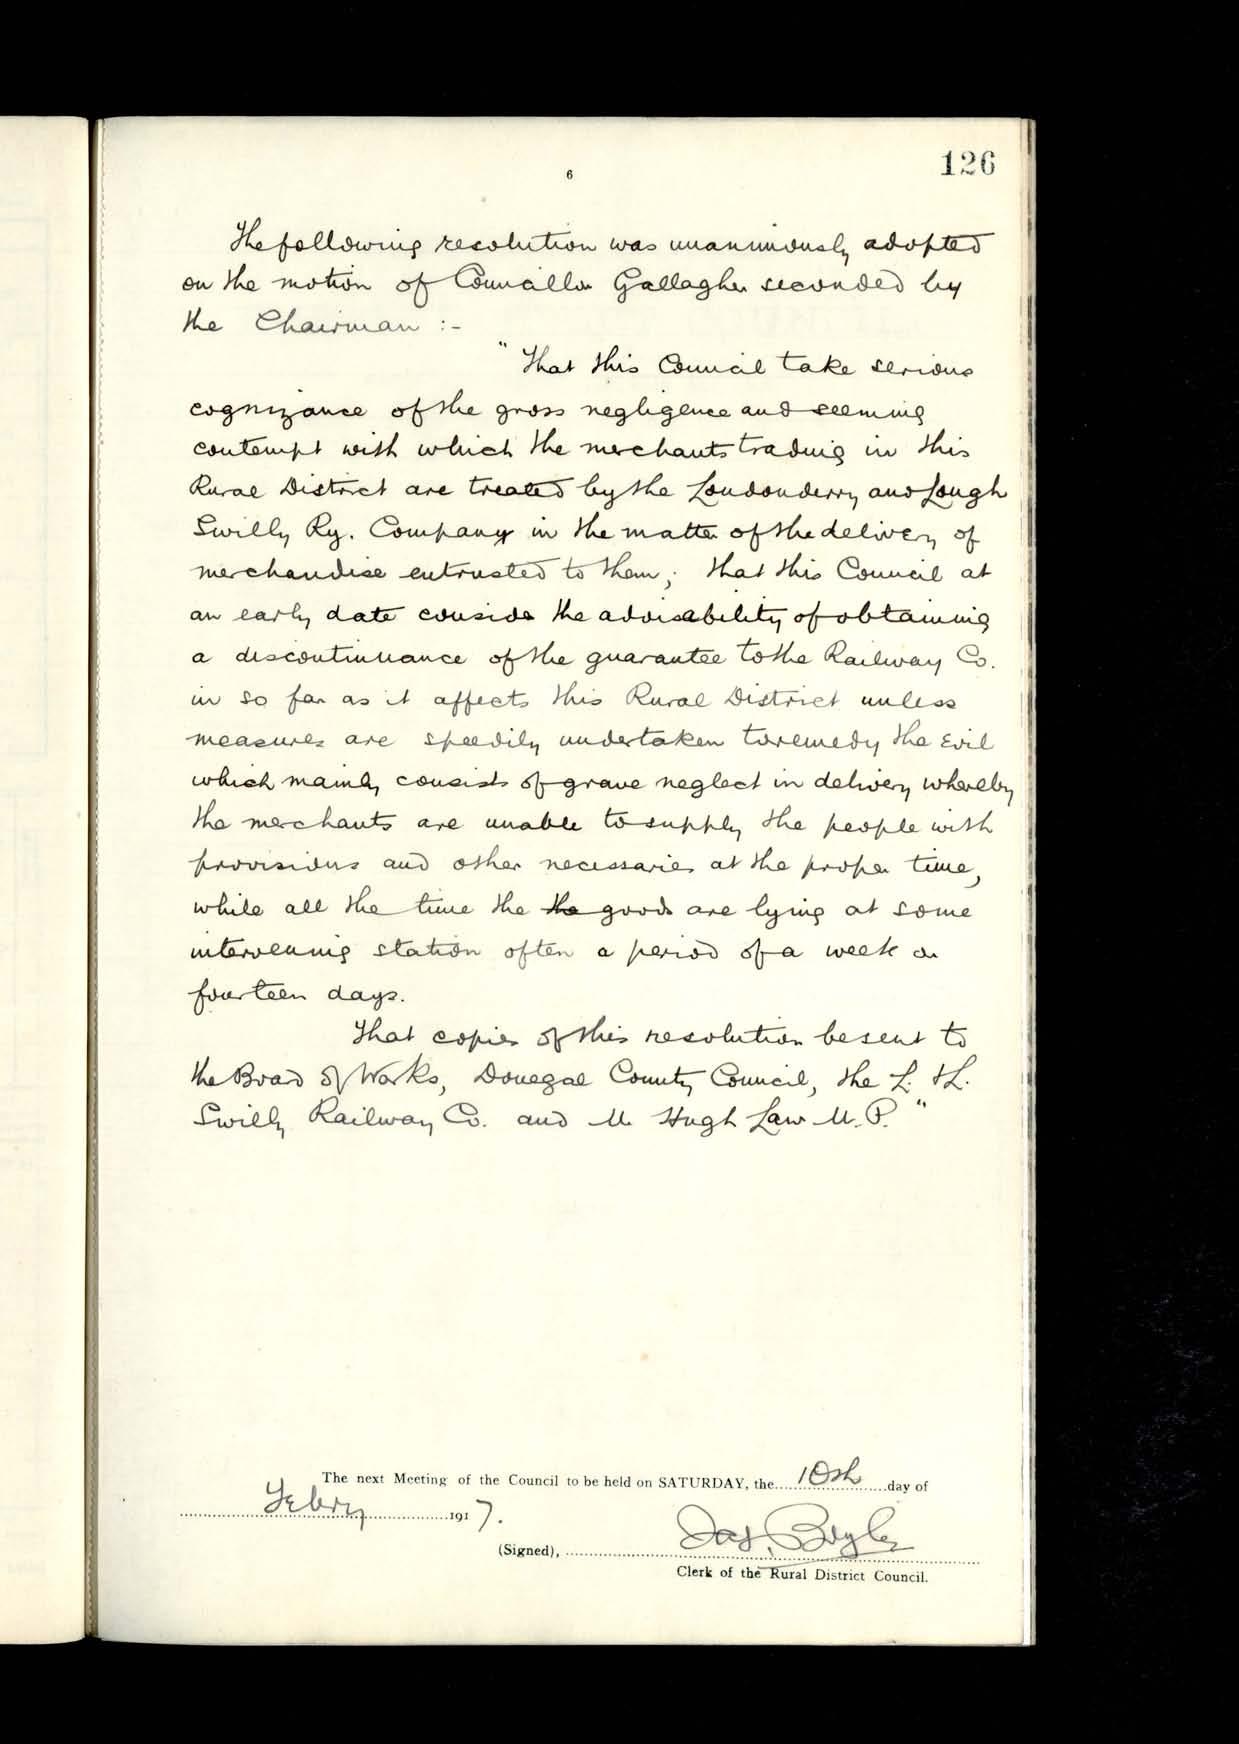 126
6
The following resolution was unanimously adopted
on the motion of Councillor Gallagher seconded by
the Chairman :-
"That this Council take serious
cognizance of the gross negligence and seeming
contempt with which the merchants trading in this
Rural District are treated by the Londonderry and Lough
Swilly Ry. Company in the matter of the delivery of
merchandise entrusted to them; that this Council at
an early date consider the advisability of obtaining
a discontinuance of the guarantee to the Railway Co.
in so far as it affects this Rural District unless
measures are speedily undertaken to remedy the evil
which mainly consists of grave neglect in delivery whereby
the merchants are unable to supply the people with
provisions and other necessaries at the proper time,
while all the time the the goods are lying at some
intervening station often a period of a week or
fourteen days.
That copies of this resolution be sent to
the Board of Works, Donegal County Council, the L. & L.
Swilly Railway Co. and Mr Hugh Law M.P."
The next Meeting of the Council to be held on SATURDAY, the 10th day of
Febry 1917.
(Signed), Jas. Boyle
Clerk of the Rural District Council.